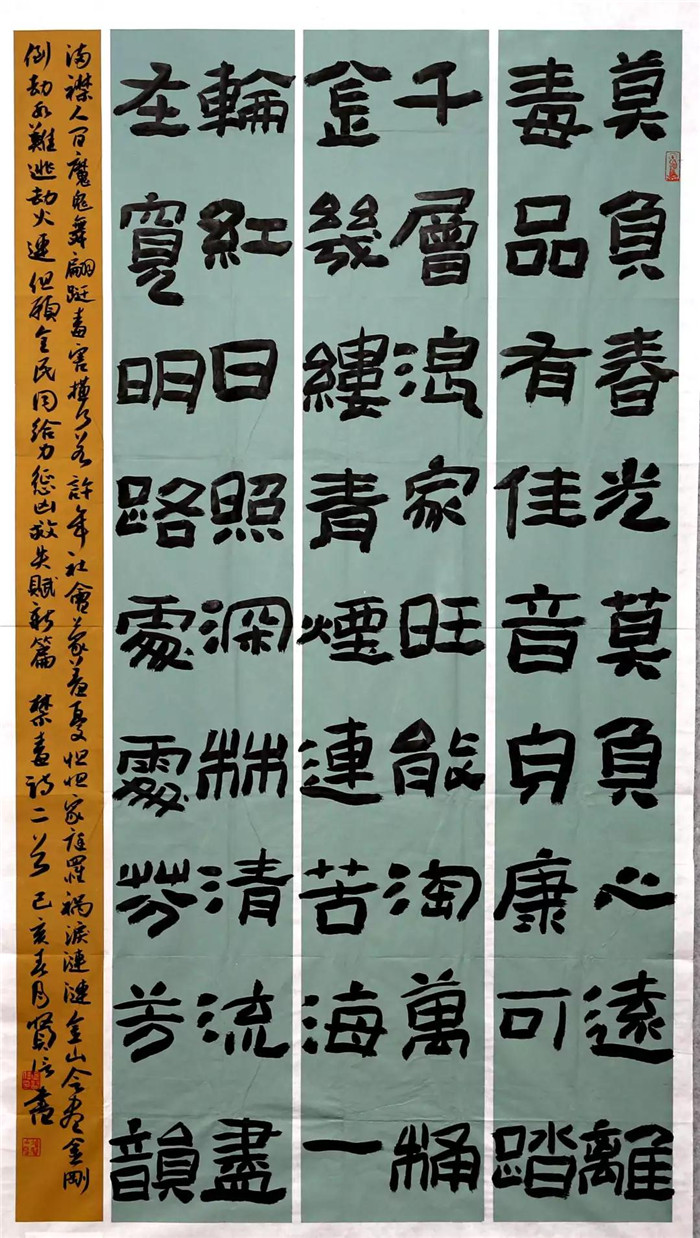 莫負春光莫負心遠離
毒品有佳音身康可踏
千層浪家旺能淘萬桶
金幾縷青煙連苦海一
輪紅日照深林清流盡
在寬明路處處芬芳韻
滿襟人間魔鬼舞翩躚毒害橫行若許年社會蒙羞憂怛怛家庭罹禍淚漣漣金山今盡金剛
倒劫水難逃劫火連但願全民同給力懲凶救失賦新篇 禁毒詩二首 己亥春月賢信書